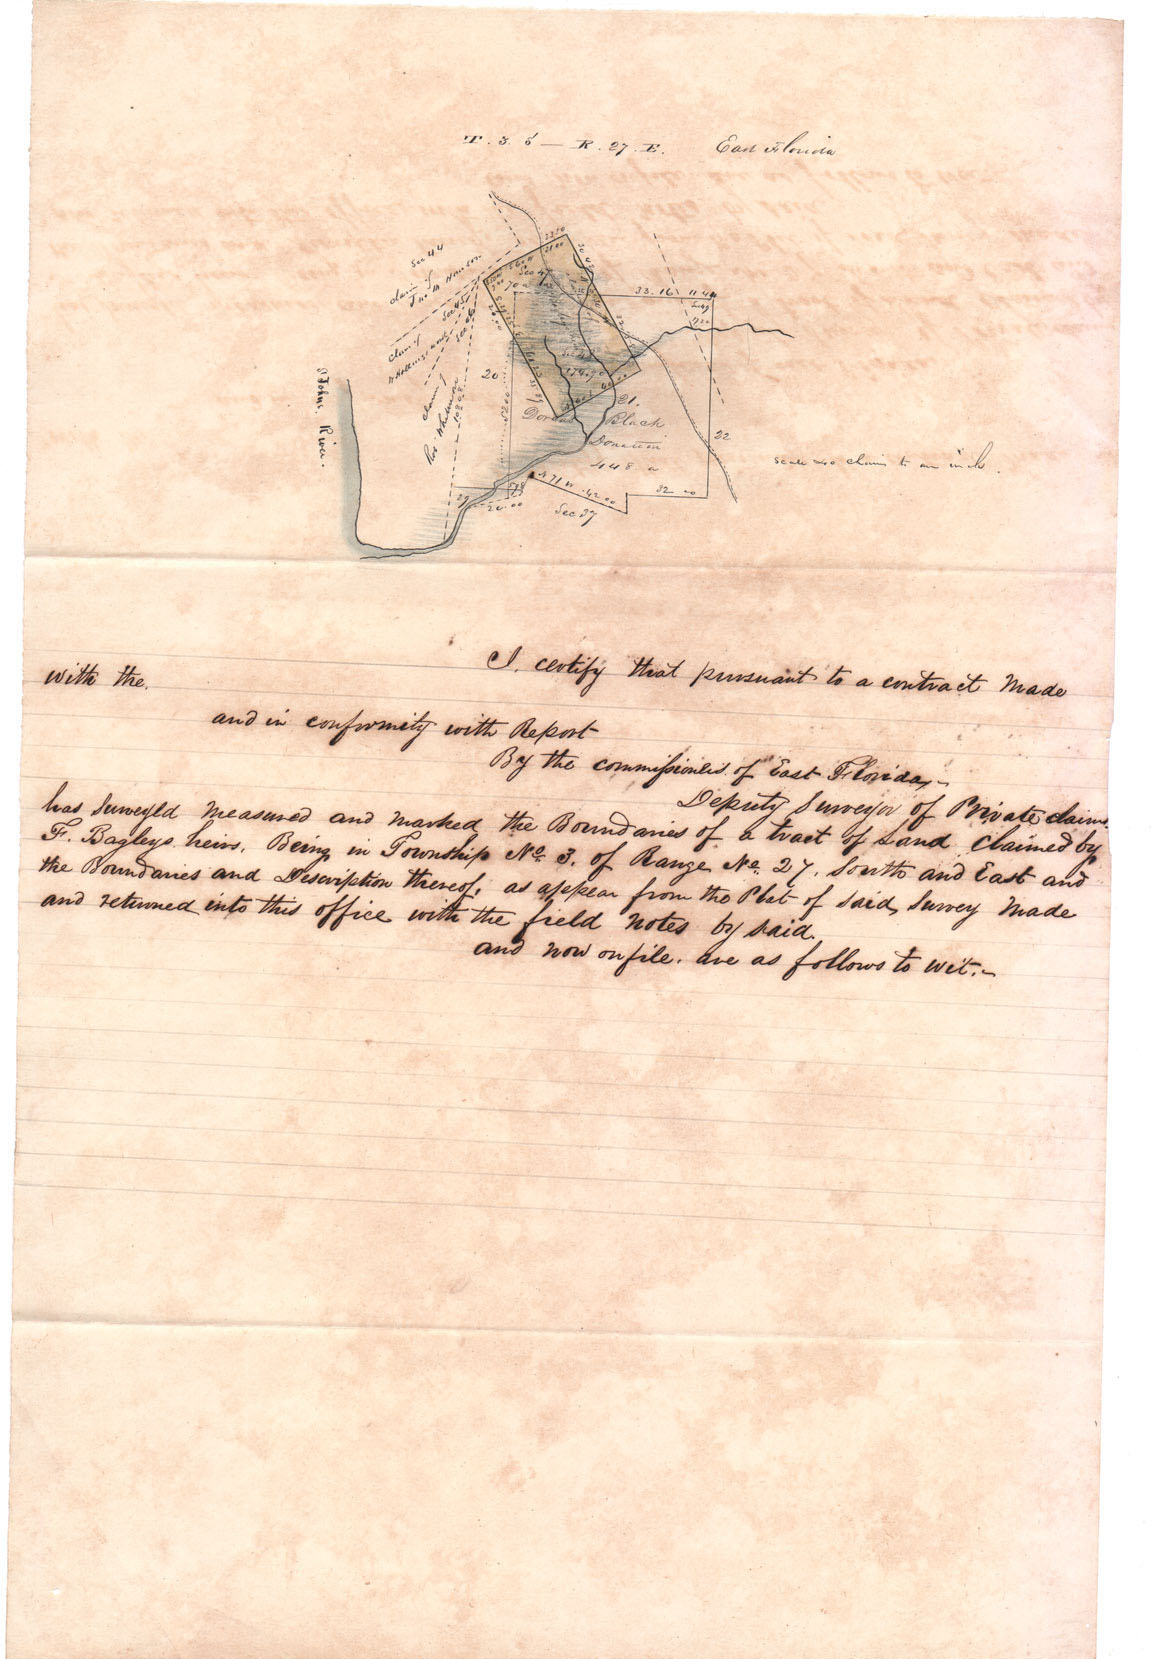 T. 3. S — R. 27. E. East Florida
Sec 44
claim of
Sec 45
claim of
claim of
Sec 47
70
33.16 11.40
20
21.
Dorcas Black
Donation
448 a
22
St Johns River.
Scale 40 chains to an inch.
42.00
32 00
20.00
Sec 37
I. certify that pursuant to a contract Made
with the.
and in conformity with Report
By the commissioners. of East Florida,-
Deputy Surveyor of Private claims.
has Surveyed Measured and Marked the Boundaries of a tract of Land Claimed by
F. Bagleys heirs. Being in Township No. 3. of Range No. 27. South and East and
the Boundaries and Description thereof. as appear from the Plat of said, Survey Made
and returned into this office with the field Notes by said.
and now on file. are as follows to wit.-